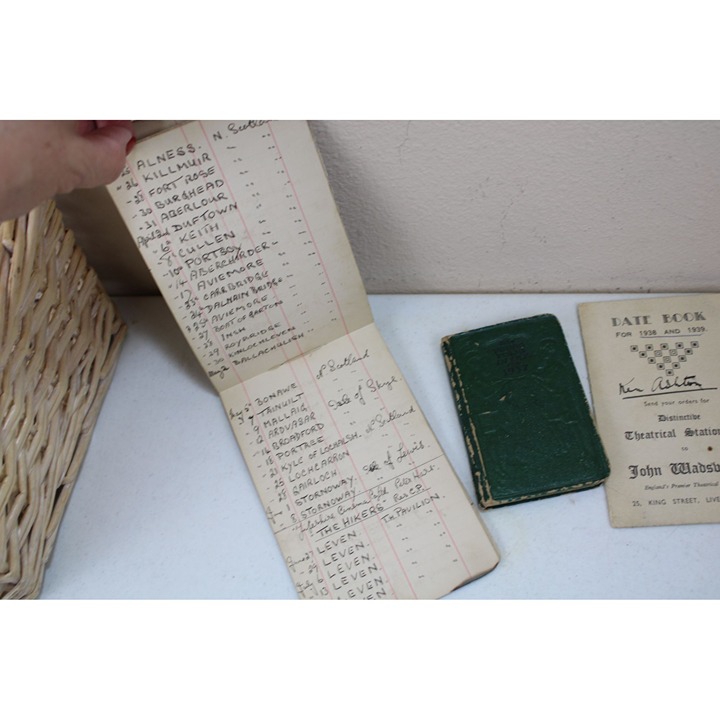 ALNESS. N. Scotland
- 26 KILLMUIR " "
- 28 FORT ROSE " "
- 30 BURGHEAD " "
- 31 ABERLOUR " "
April 2nd DUFTOWN " "
- 6 KEITH " "
- 8 CULLEN " "
- 10 PORTSOY " "
- 14 ABERCHIRDER - "
- 17 AVIEMORE " "
CARRBRIDGE " "
DALNAIN BRIDGE "
AVIEMORE " "
27 BOAT OF GARTEN "
- 28 INSH " "
- 29 ROYBRIDGE " "
- 30 KINLOCHLEVEN "
BALLACHULISH "
BONAWE N Scotland
- 7 TAINUILT " "
- 9 MALLAIG " "
- 12 ARDVASAR Isle of Skye.
- 14 BROADFORD " "
- 18 PORTREE " "
- 21 KYLE OF LOCHALSH. N Scotland
- 25 LOCHCARRON " "
- 28 GAIRLOCH. " "
STORNOWAY. Isle of Lewis.
- 8 STORNOWAY. " "
Cinema
THE HIKERS
27 LEVEN. The PAVILION.
LEVEN. " "
July 6 LEVEN. " "
- 13 LEVEN. " "
LEVEN. " "
DATE BOOK
FOR 1938 AND 1939.
Ken Ashton
Send your orders for
Distinctive
Theatrical Station
to
John Wadsw
England's Premier Theatrical
25, KING STREET, LIV